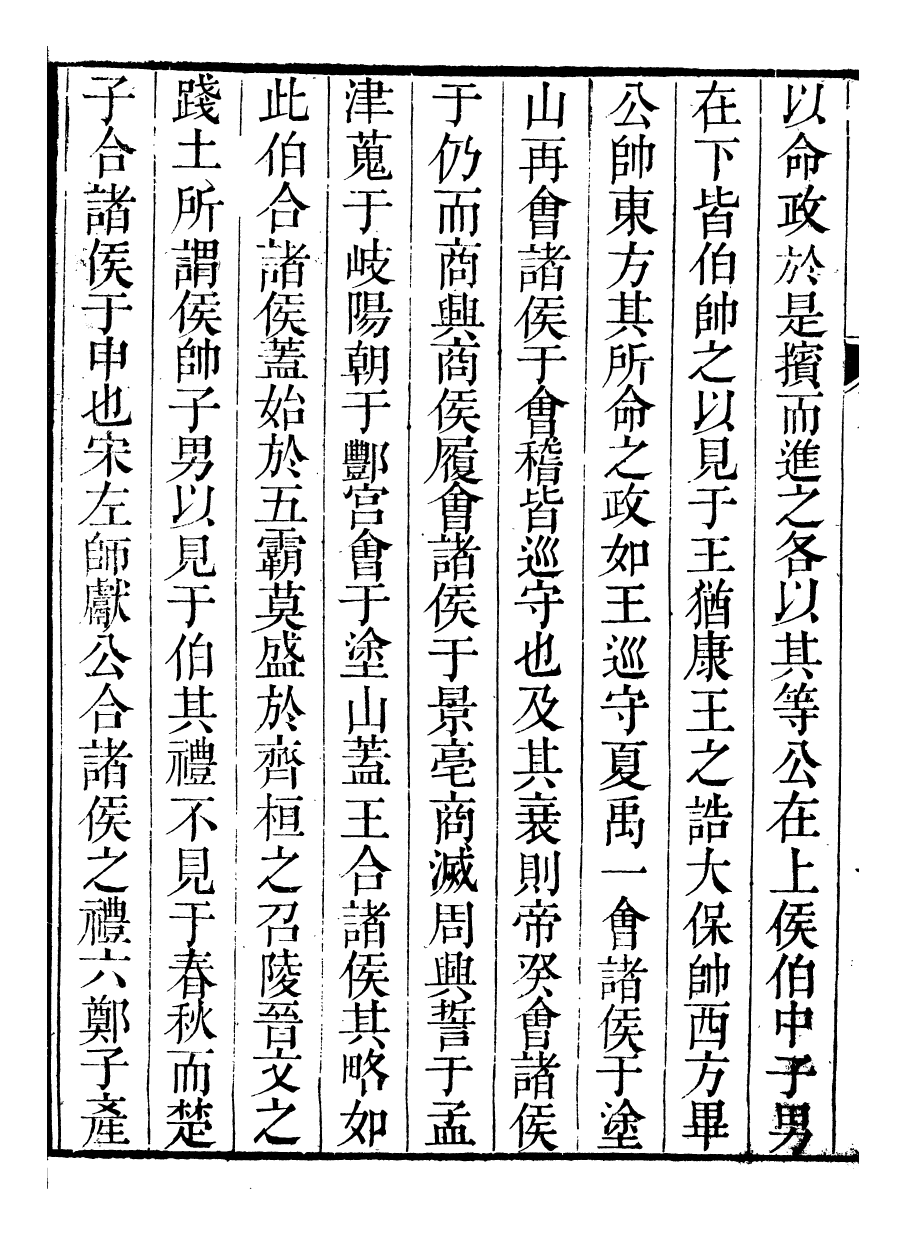 以命政於是擯而進之各以其等公在上侯伯中子男
在下皆伯帥之以見于王猶康王之誥大保帥西方畢
公帥東方其所命之政如王巡守夏禹一會諸侯于塗
山再會諸侯于會稽皆巡守也及其衰則帝癸會諸侯
于仍而商興商侯履會諸侯于景亳商滅周興誓于孟
津蒐于岐陽朝于酆宮會于塗山蓋王合諸侯其略如
此伯合諸侯蓋始於五霸莫盛於齊桓之召陵晉文之
踐土所謂侯帥子男以見于伯其禮不見于春秋而楚
子合諸侯于申也宋左師獻公合諸侯之禮六鄭子產